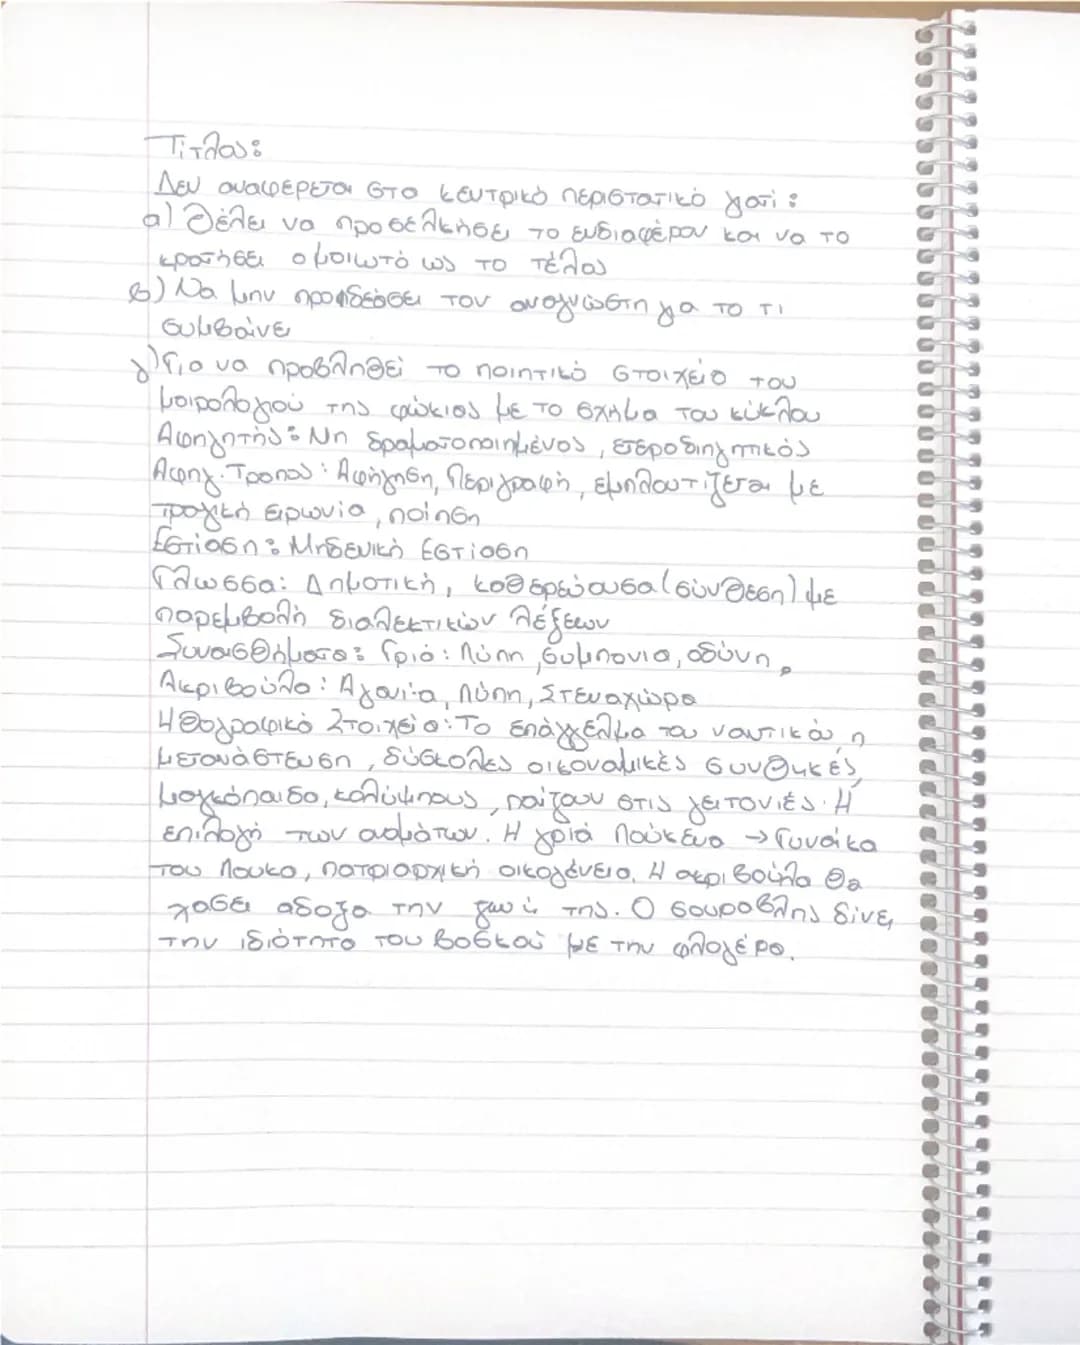 Τίτλος:
Δεν αναφέρεται στο κεντρικό περιστατικό γατί:
α) Θέλει να προσελκήσε το ενδιαφέρον και να το
κρατήσει αμοιωτό ως το τέλος
β) Να μην προϊδεάσει τον αναγνώστη γα το τι
συμβαίνε
γ) Γιο να προβληθεί το ποιητικό στοιχείο του
μοιρολογιού της φώκιας με το σχήμα του κύκλου
Αφηγητής: Μη δραματοποιημένος, ετεροδιηγητικός
Αφηγ. Τροπος: Αφήγηση, Περιγραφή, εμπλουτίζεται με
τραγική ειρωνία, ποίηση
Εστίαση: Μηδενική Εστίαση
Γλωσσα: Δημοτική, καθερεύουσα (σύνθεση) με
παρεμβολή διαλεκτικών λέξεων
Συναισθήματα: Γριά: Λύπη, συμπονια, οδύνη.
Ακριβούλα: Αγωνία, λύπη, Στεναχώρα
Ηθογραφικό Στοιχείο: Το επάγγελμα του ναυτικού η
μετανάστευση, δύσκολες οικονομικές συνθηκές,
μαγκόπαιδο, καλύμπους, παίζουν στις γειτονιές. Η
επιλογή των ονομάτων. Η γριά Λούκενα → Γυναίκα
του Λουκα, πατριαρχική οικογένεια. Η ακριβούλα θα
χασει αδοξα την ζωή της. Ο σουραβλης δίνει
την ιδιότητα του βοσκού με την φλογέρα.